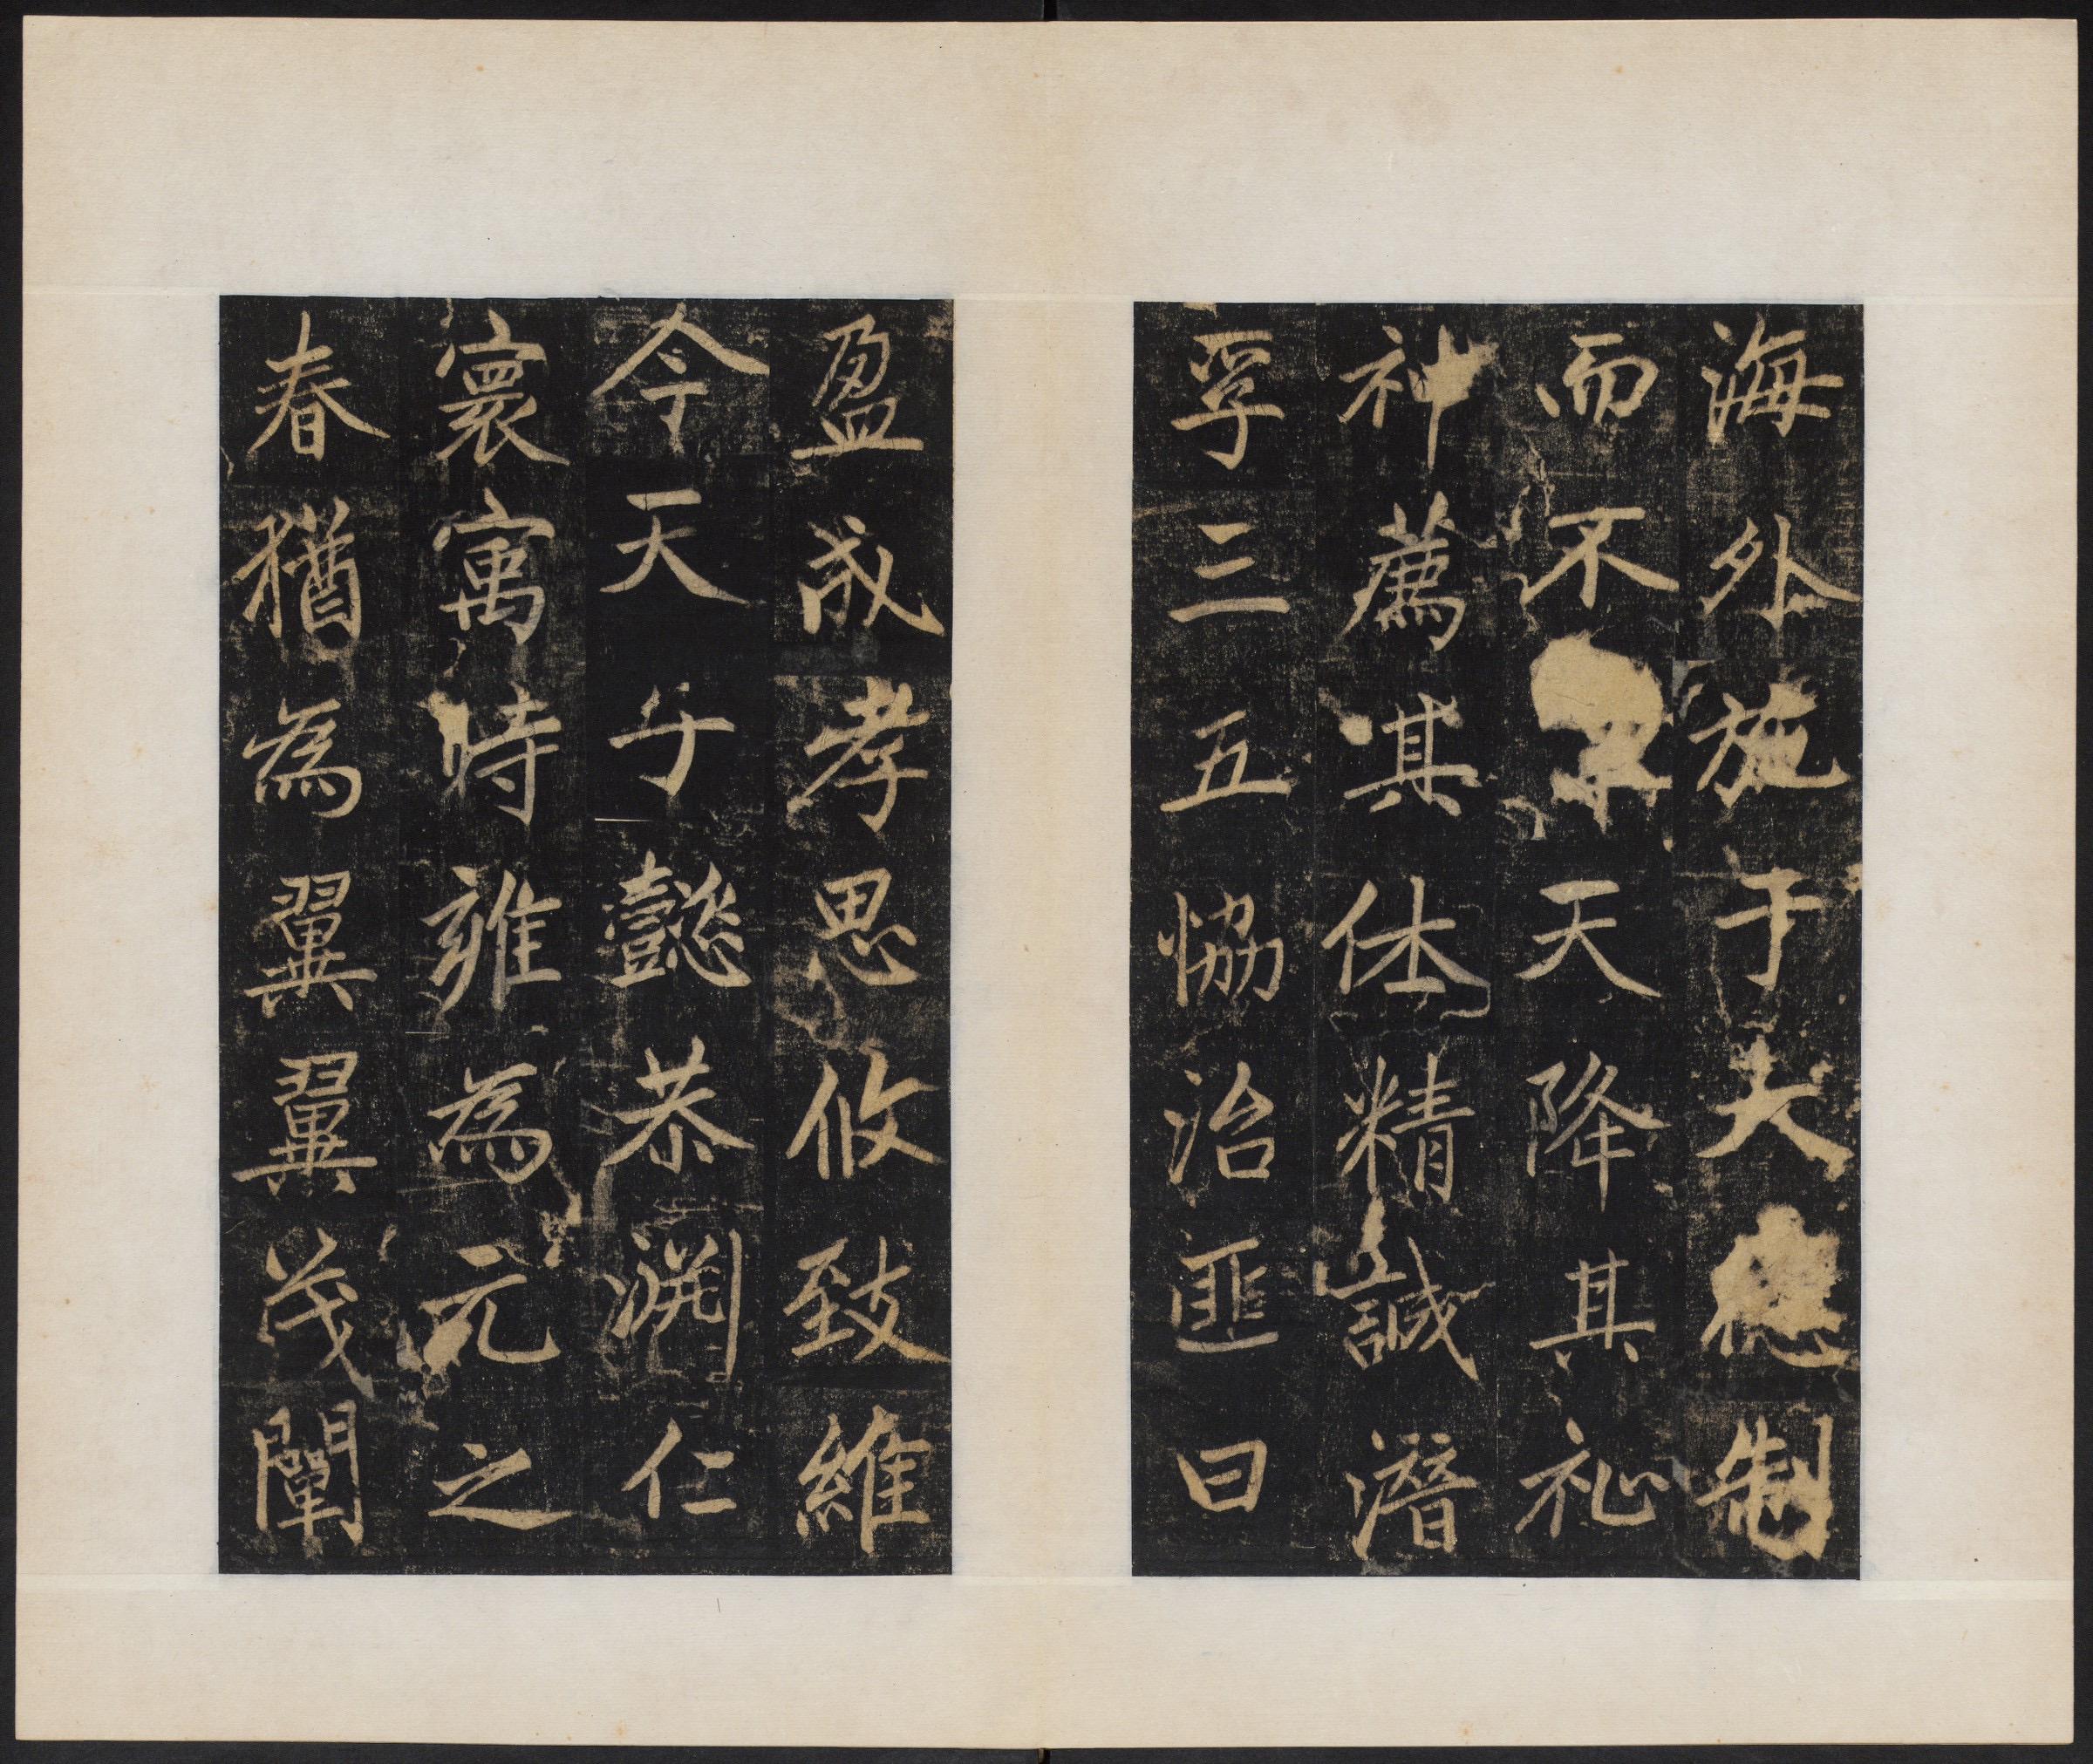 海外施于大德制
而不㐫天降其祉
神薦其休精誠潛
孚三五恊治匪曰
盈成孝思攸致維
今天子懿恭淵仁
寰寓時雍為元之
春猶為翼翼茂闡